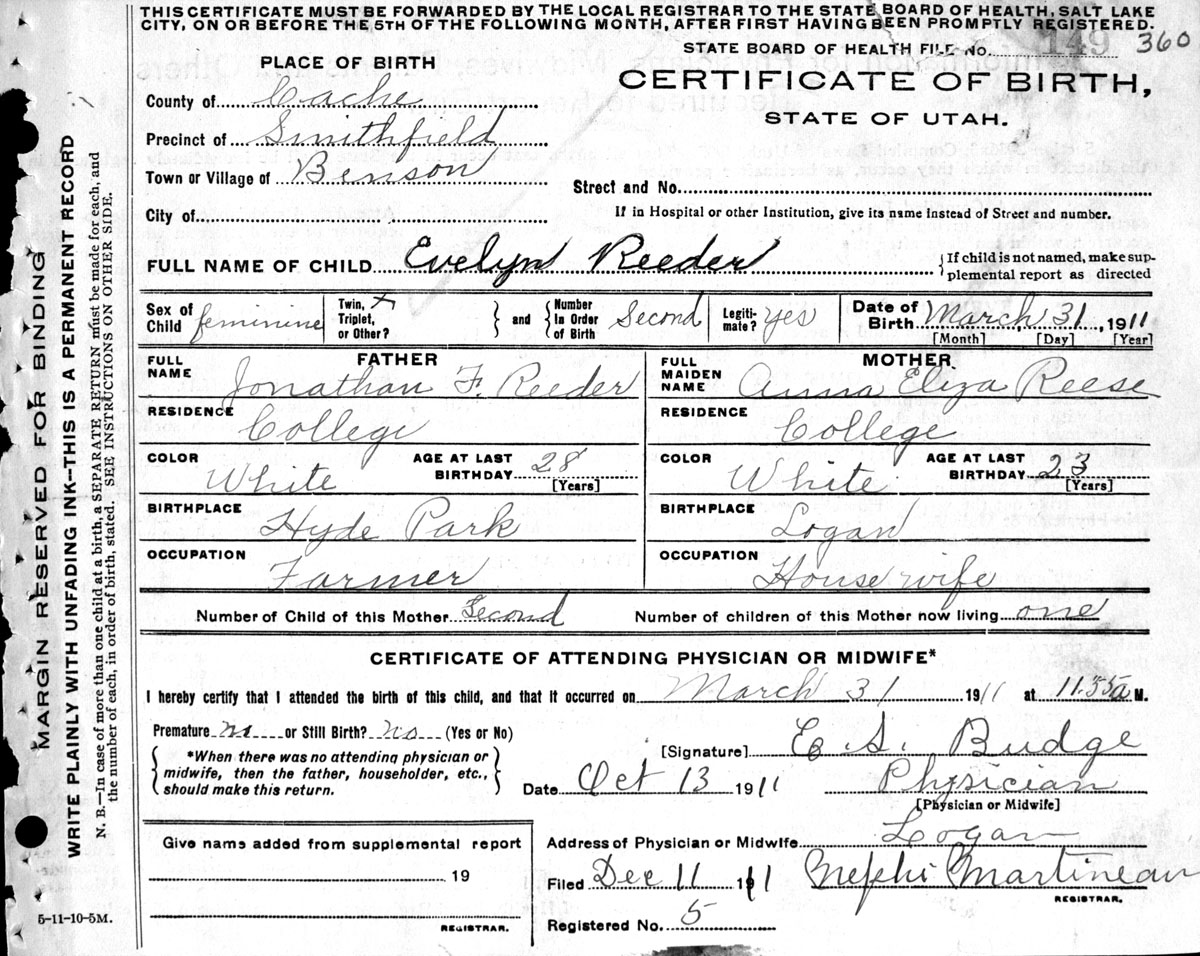 THIS CERTIFICATE MUST BE FORWARDED BY THE LOCAL REGISTRAR TO THE STATE BOARD OF HEALTH, SALT LAKE
CITY, ON OR BEFORE THE 5TH OF THE FOLLOWING MONTH, AFTER FIRST HAVING BEEN PROMPTLY REGISTERED.
STATE BOARD OF HEALTH FILE No. 149 360
PLACE OF BIRTH
CERTIFICATE OF BIRTH,
STATE OF UTAH.
County of Cache
Precinct of Smithfield
Town or Village of Benson
Street and No.
City of
If in Hospital or other Institution, give its name instead of Street and number.
FULL NAME OF CHILD Evelyn Reeder
{If child is not named, make sup-
plemental report as directed
Sex of Child feminine
Twin, Triplet, or Other? x
and
Number In Order of Birth Second
Legiti-mate? yes
Date of Birth March 31, 1911
[Month] [Day] [Year]
FATHER
FULL NAME Jonathan F. Reeder
RESIDENCE College
COLOR White
AGE AT LAST BIRTHDAY 28
[Years]
BIRTHPLACE Hyde Park
OCCUPATION Farmer
MOTHER
FULL MAIDEN NAME Anna Eliza Reese
RESIDENCE College
COLOR White
AGE AT LAST BIRTHDAY 23
[Years]
BIRTHPLACE Logan
OCCUPATION Housewife
Number of Child of this Mother Second Number of children of this Mother now living one
CERTIFICATE OF ATTENDING PHYSICIAN OR MIDWIFE*
I hereby certify that I attended the birth of this child, and that it occurred on March 31 1911 at 11.55 a M.
Premature no or Still Birth? no (Yes or No)
*When there was no attending physician or
midwife, then the father, householder, etc.,
should make this return.
[Signature] E. S. Budge
Date Oct 13 1911 Physician
[Physician or Midwife]
Address of Physician or Midwife Logan
Filed Dec 11 1911 Nephi Martineau
REGISTRAR.
Registered No. 5
Give name added from supplemental report
19
REGISTRAR.
5-11-10-5M.
MARGIN RESERVED FOR BINDING
WRITE PLAINLY WITH UNFADING INK—THIS IS A PERMANENT RECORD
N. B.—In case of more than one child at a birth, a SEPARATE RETURN must be made for each, and
the number of each, in order of birth, stated. SEE INSTRUCTIONS ON OTHER SIDE.